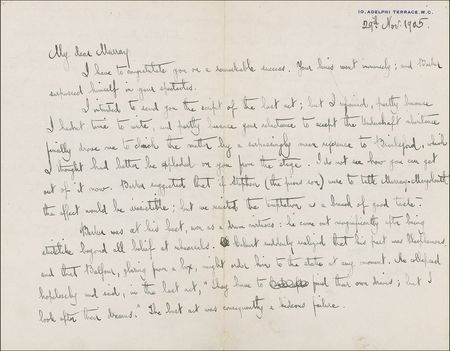 10, ADELPHI TERRACE. W.C.
29th Nov. 1905.
My dear Murray
I have to congratulate you on a remarkable success. Your lines went immensely; and Barker
surpassed himself in your spectacles.
I intended to send you the script of the last act; but I refrained, partly because
I hadn't time to write, and partly because your reluctance to accept the Undershaft inheritance
finally drove me to clinch the matter by a surprisingly mean reference to which
I thought had better be exploded on you from the stage. I do not see how you can get
out of it now. Barker suggested that if Stephen (the pious son) were to talk
the effect would be irresistible; but we resisted the temptation as a breach of good taste.
Barker was at his best, was as a drum virtuoso: he came out magnificently after being
beyond all belief at rehearsals. suddenly realized that his part was blasphemous,
and that Balfour, glaring from a box, might order him to the stake at any moment. He collapsed
hopelessly and said, in the last act, "They have to find their own dreams; but I
look after their drains." The last act was consequently a hideous failure.